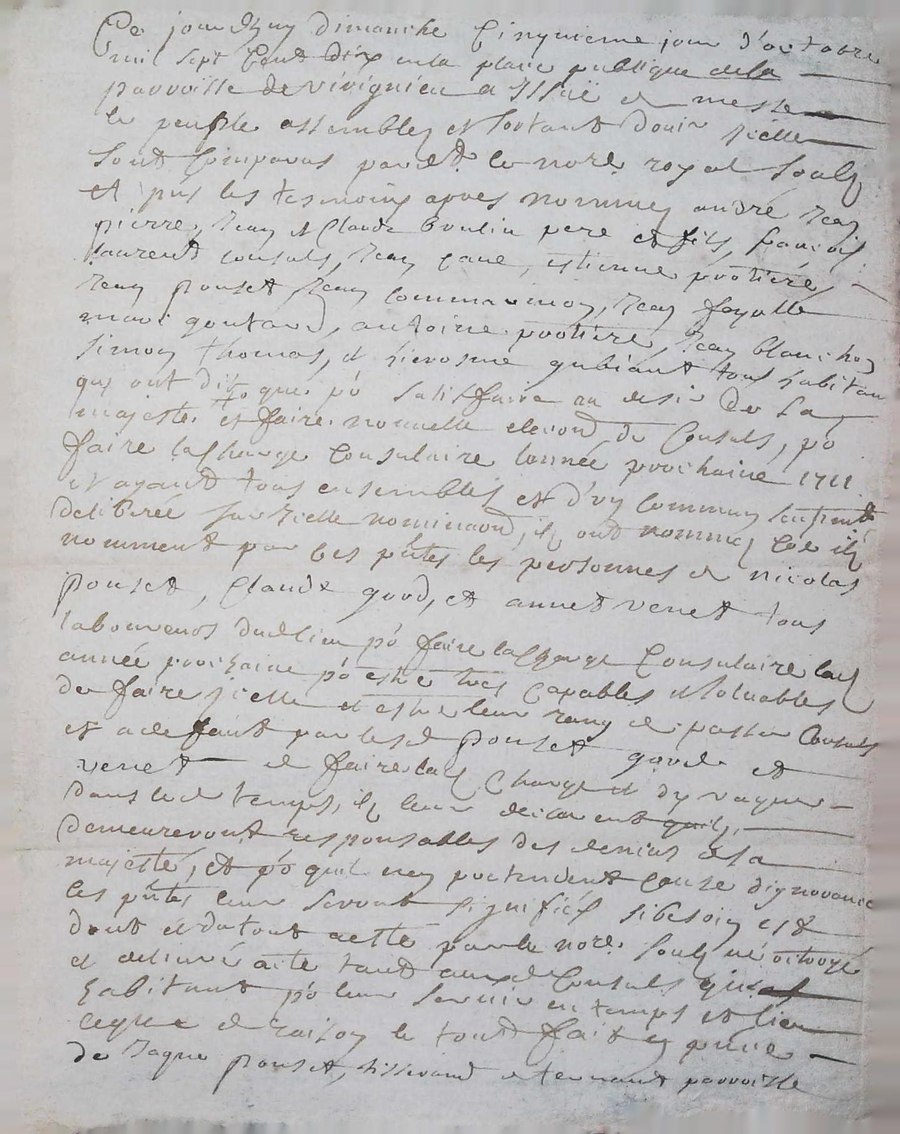 Ce jourdhuy dimanche Cinquieme jour d'octobre
mil sept Cent dix en la place publique de la
parroisse de vivignieu a Issüe de messe
le peuple assemblez et sortant d'ouir jcelle
sont Comparus pardt le nore royal soubz
et pns les tesmoins apres nommez andré Jean
pierre, Jean et Claude boulin pere et fils, françois
laurent consuls, Jean Cave, estienne
Jean pouset, Jean Jean fayolle
goutard, antoine Jean blanchon
Simon thomas, et hierosme gubiant tous habitans
qui ont dit que po satisfaire au desir de sa
majeste et faire nouvelle de Consuls, po
faire la Charge Consulaire lannée prochaine 1711
et ayant tous ensembles et d'un commun sentimt
deliberée sur jcelle ilz ont nommez Coe ilz
nomment par Ces pntes les personnes de nicolas
pouset, Claude goud, et annet venet tous
laboureurs dud lieu po faire la Charge Consulaire lad
année prochaine po estre tres Capables et soluables
de faire jcelle et estre leur rang de passer Consuls
et a defaut par lesd pouset goud et
venet de faire lad Charge et dy vaquer
dans led temps, ilz leur declarent quilz
demeureront responsables des deniers de sa
majesté, et po quil nen pretendent Cause dignorance
Ces pntes leur seront signifiés si besoin est
dont et du tout acte par le nore soubz né octroyé
et deliuré acte tant auxd Consuls que
habitant po leur servir en temps et lieu
ce que de raison le tout fait en pnce
de Jaque pouset, tisserand et tenant parroisse